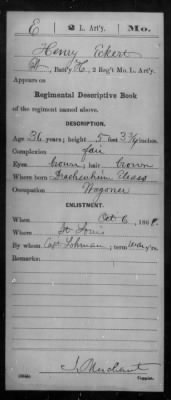 E 2 L. Art'y. Mo.
Henry Eckert
Bat'y H, 2 Reg't Mo. L. Art'y.
Appears on
Regimental Descriptive Book
of the regiment named above.
DESCRIPTION.
Age 36 years; height 5 feet 3 ¾ inches.
Complexion fair
Eyes brown; hair brown
Where born
Occupation Wagoner
ENLISTMENT.
When Oct 6, 186
Where St Louis
By whom Capt Lohman; term y'rs.
Remarks:
J. Merchant
Copyist.